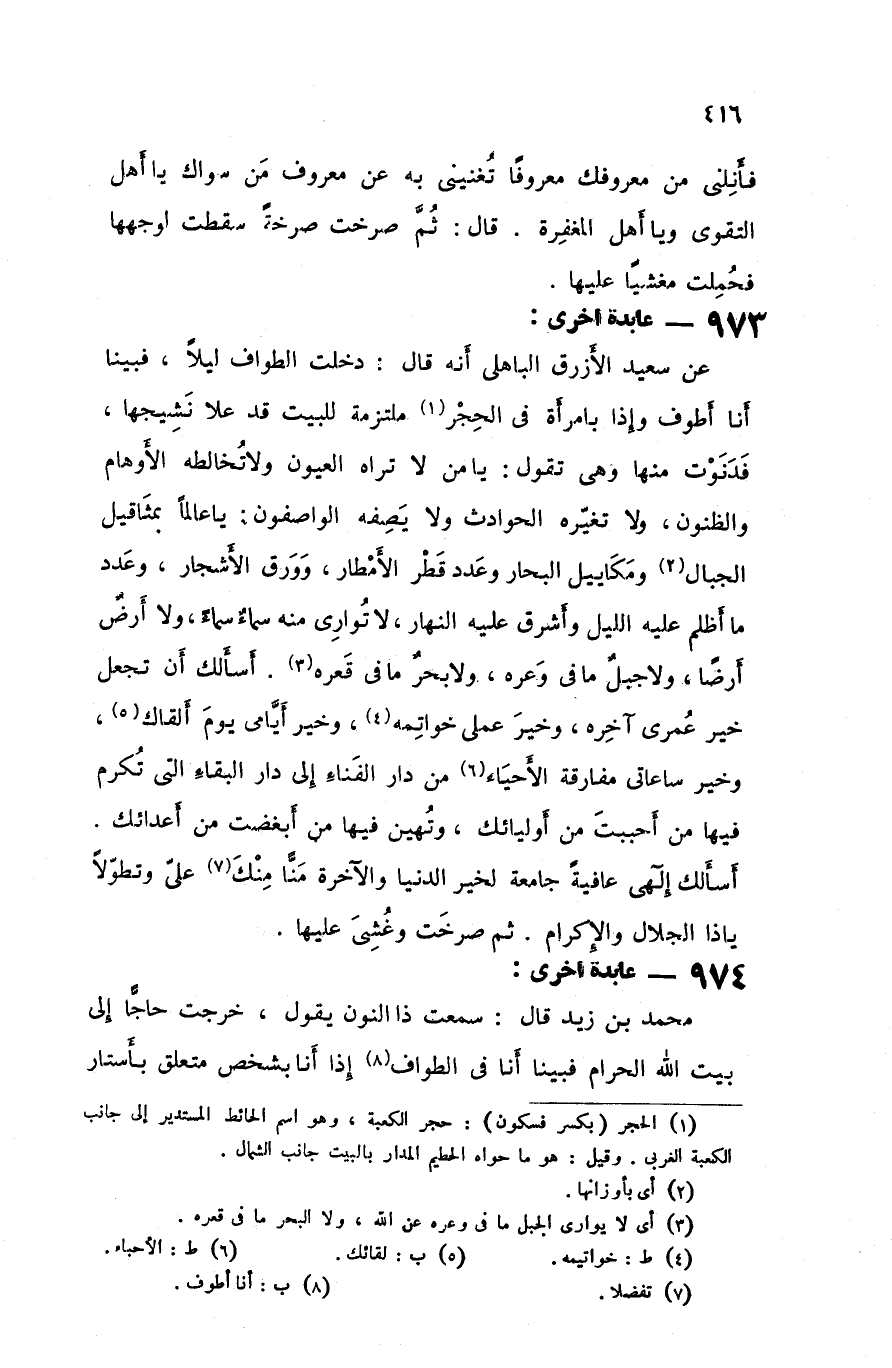 ٤١٦
فأَنِلنى من معروفك معروفًا تُغنينى به عن معروف مَن سواك يا أَهل
التقوى ويا أهل المغفِرة . قال : ثُمَّ صرخت صرخةً سقطت لوجهها
فحُمِلت مغشيًا عليها .
٩٧٣ — عابدة أخرى :
عن سعيد الأَزرق الباهلى أَنه قال : دخلت الطواف ليلاً ، فبينا
أَنا أَطوف وإِذا بامرأَة فى الحِجْر(١) ملتزمة للبيت قد علا نَشِيجها ،
فَدَنَوْت منها وهى تقول : يامن لا تراه العيون ولاتُخالطه الأَوهام
والظنون ، ولا تغيّره الحوادث ولا يَصِفه الواصفون : ياعالماً بمثَاقيل
الجبال(٢) ومَكَاييل البحار وعَدد قَطْر الأَمْطار ، وَوَرق الأَشجار ، وعَدد
ما أَظلم عليه الليل وأَشرق عليه النهار ، لاتُوارِى منه سماءٌ سماءً ، ولا أَرضٌ
أَرضًا ، ولاجبلٌ مافى وَعره ، ولابحرٌ مافى قَعره(٣) . أَسأَلك أَن تجعل
خير عُمرى آخِره ، وخيرَ عملى خواتِمه(٤) ، وخير أَيَّامى يومَ أَلقاك(٥) ،
وخير ساعاتى مفارقة الأَحيَاء(٦) من دار الفَناء إلى دار البقاء التى تُكرم
فيها من أَحببتَ من أَوليائك ، وتُهين فيها من أَبغضت من أَعدائك .
أَسأَلك إِلٰهى عافيةً جامعة لخير الدنيا والآخرة مَنًّا مِنْكَ(٧) علىّ وتطوّلاً
ياذا الجلال والإِكرام . ثم صرخَت وغُشِىَ عليها .
٩٧٤ — عابدة أخرى :
محمد بن زيد قال : سمعت ذا النون يقول ، خرجت حاجًّا إِلى
بيت الله الحرام فبينا أَنا فى الطواف(٨) إِذا أَنا بشخص متعلق بأَستار
(١) الحجر (بكسر فسكون) : حجر الكعبة ، وهو اسم الحائط المستدير إلى جانب
الكعبة الغربى . وقيل : هو ما حواه الحطيم المدار بالبيت جانب الشمال .
(٢) أى بأوزانها .
(٣) أى لا يوارى الجبل ما فى وعره عن الله ، ولا البحر ما فى قعره .
(٤) ط : خواتيمه . (٥) ب : لقائك . (٦) ط : الأحباء .
(٧) تفضلا . (٨) ب : أنا أطوف .